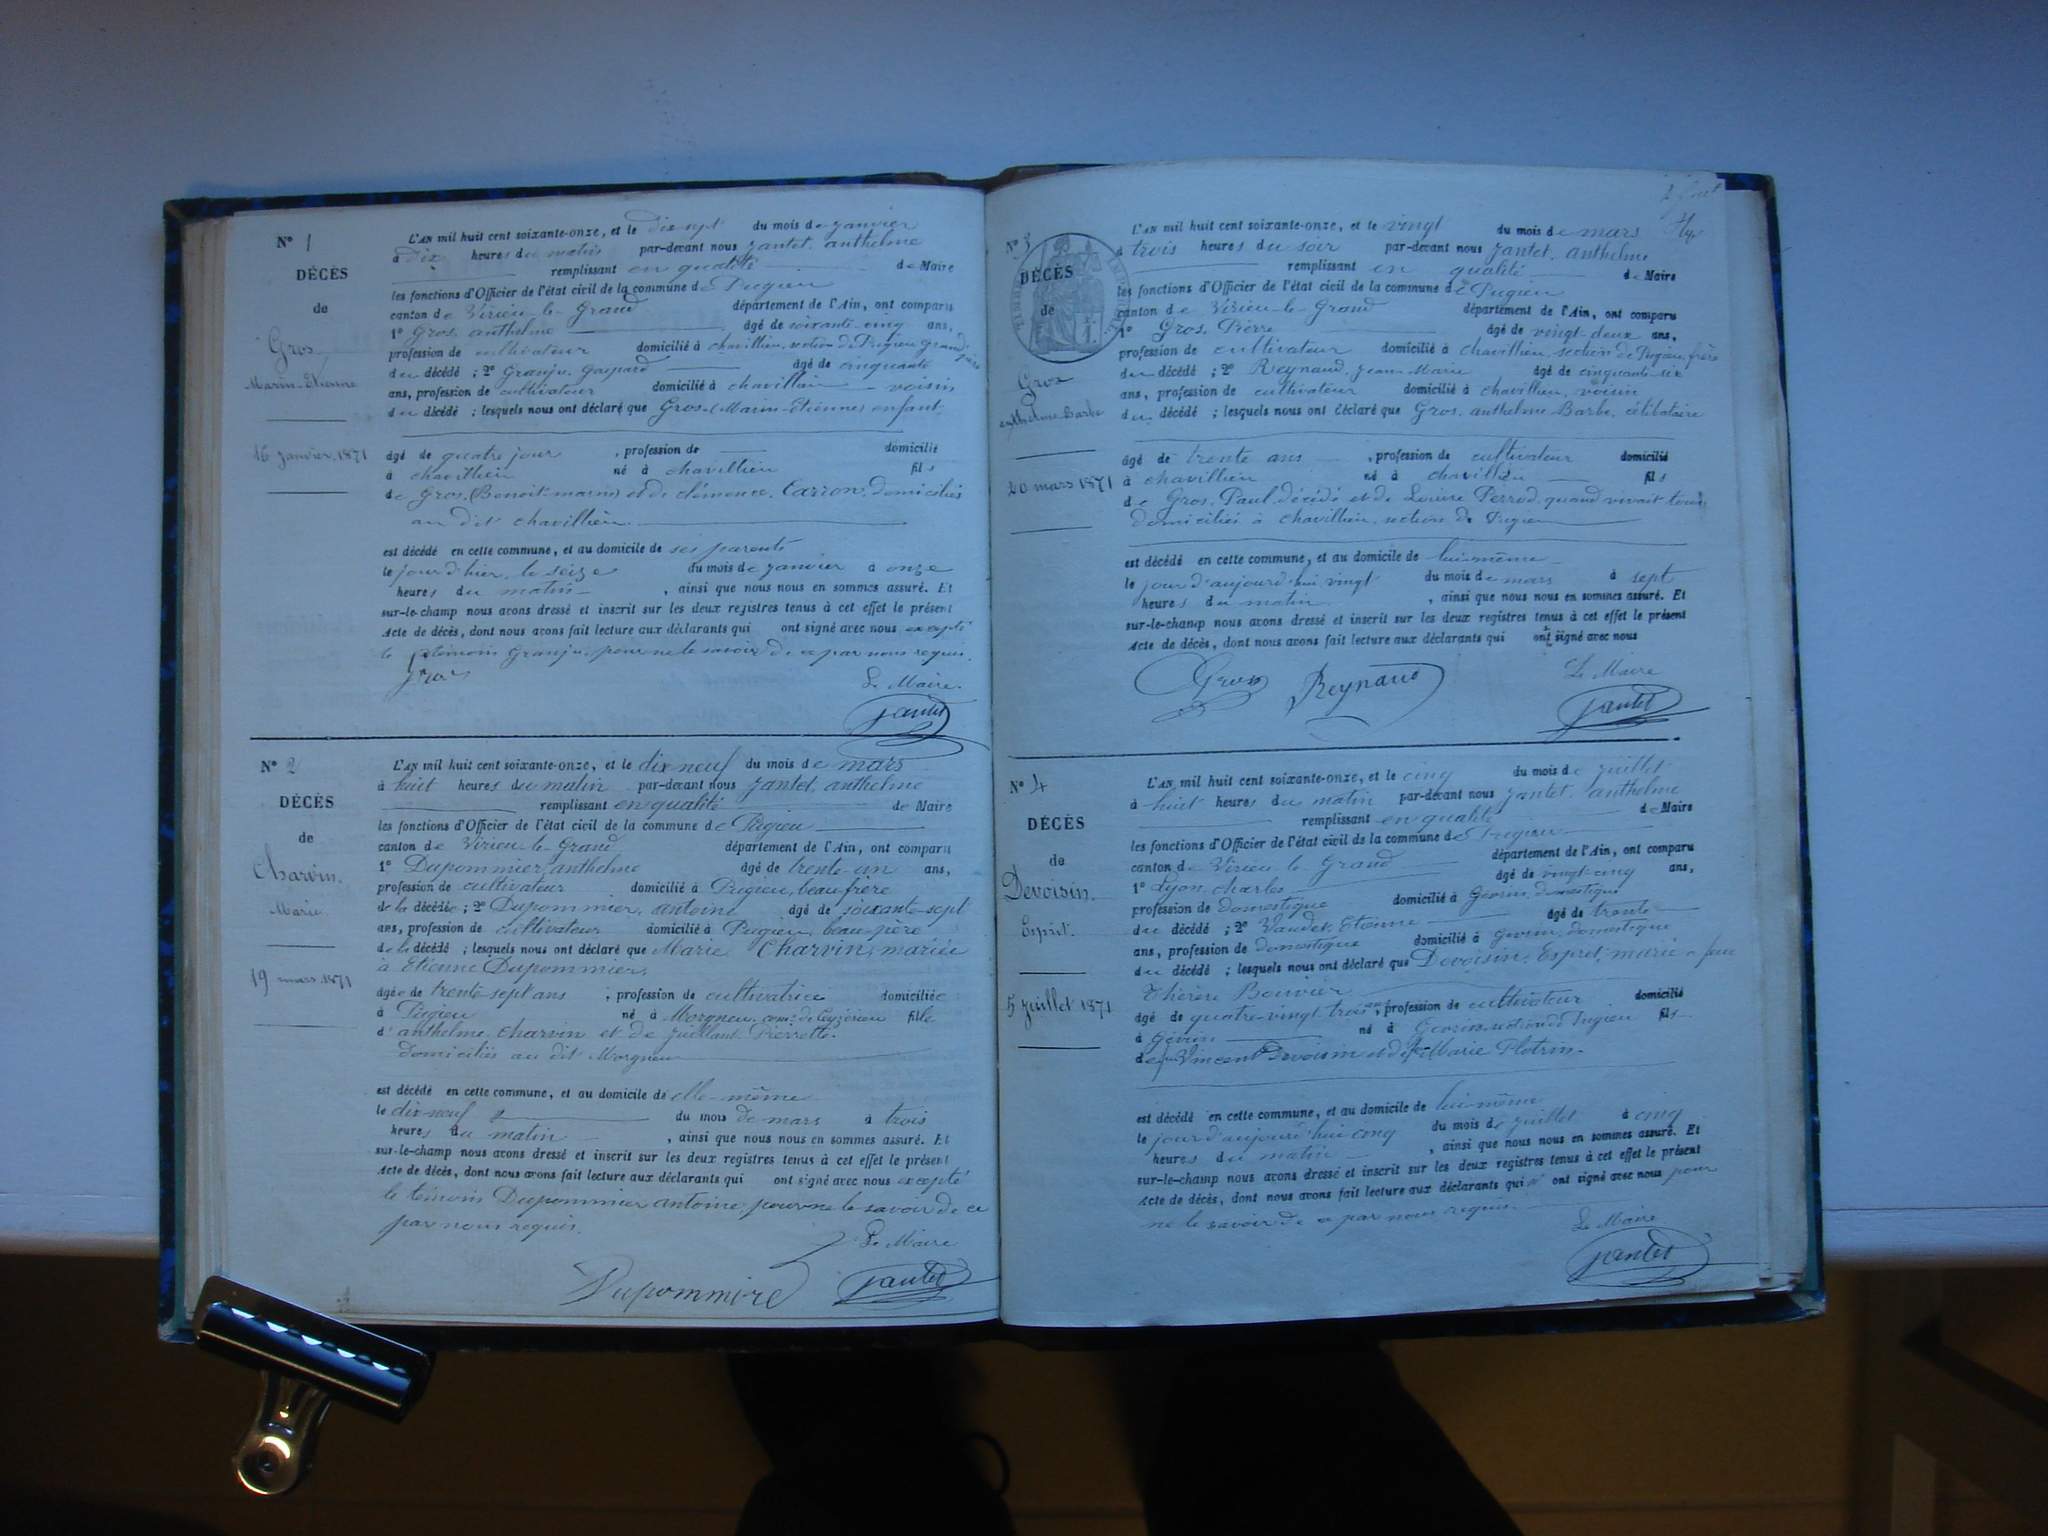 N° 1
DÉCÈS
de
Gros
Marin-Etienne
16 Janvier 1871
L'AN mil huit cent soixante-onze, et le dix sept du mois de Janvier
à dix heures du matin par-devant nous Jantet, anthelme
remplissant en qualité de Maire
les fonctions d'Officier de l'état civil de la commune de Pugieu
canton de Virieu-le-Grand département de l'Ain, ont comparu
1° Gros, anthelme âgé de soixante-cinq ans,
profession de cultivateur domicilié à chavillieu, section de Pugieu Grand-père
du décédé ; 2° Granju, Gaspard âgé de cinquante
ans, profession de cultivateur domicilié à chavillieu - voisin
du décédé ; lesquels nous ont déclaré que Gros (Marin-Etienne) enfant
âgé de quatre jour , profession de domicilié
à chavillieu né à chavillieu fils
de Gros (Benoit-marin) et de clémence Carron, domiciliés
au dit chavillieu.
est décédé en cette commune, et au domicile de ses parents
le jour d'hier, le seize du mois de Janvier à onze
heures du matin , ainsi que nous nous en sommes assuré. Et
sur-le-champ nous avons dressé et inscrit sur les deux registres tenus à cet effet le présent
Acte de décès, dont nous avons fait lecture aux déclarants qui ont signé avec nous excepté
le témoin Granju, pour ne le savoir de ce par nous requis.
Gros
Le Maire.
Jantet
N° 2
DÉCÈS
de
Charvin.
Marie.
19 mars 1871
L'AN mil huit cent soixante-onze, et le dix neuf du mois de mars
à huit heures du matin par-devant nous Jantet, anthelme
remplissant en qualité de Maire
les fonctions d'Officier de l'état civil de la commune de Pugieu
canton de Virieu-le-Grand département de l'Ain, ont comparu
1° Dupommier, anthelme âgé de trente-un ans,
profession de cultivateur domicilié à Pugieu, beau frère
de la décédée ; 2° Dupommier, antoine âgé de soixante-sept
ans, profession de cultivateur domicilié à Pugieu, beau-père
de la décédé ; lesquels nous ont déclaré que Marie Charvin, mariée
à Etienne Dupommier,
âgée de trente-sept ans , profession de cultivatrice domiciliée
à Pugieu né à Morgneu, com: de Ceyzérieu fille
d'anthelme charvin et de Juillant Pierrette.
Domiciliés au dit Morgneu
est décédé en cette commune, et au domicile de elle-même
le dix-neuf du mois de mars à trois
heures du matin , ainsi que nous nous en sommes assuré. Et
sur-le-champ nous avons dressé et inscrit sur les deux registres tenus à cet effet le présent
Acte de décès, dont nous avons fait lecture aux déclarants qui ont signé avec nous excepté
le témoin Dupommier antoine, pour ne le savoir de ce
par nous requis.
Le Maire
Dupommire Jantet
N° 3
DÉCÈS
de
Gros
anthelme-Barbe
20 mars 1871
L'AN mil huit cent soixante-onze, et le vingt du mois de mars
à trois heures du soir par-devant nous Jantet, anthelme
remplissant en qualité de Maire
les fonctions d'Officier de l'état civil de la commune de Pugieu
canton de Virieu-le-Grand département de l'Ain, ont comparu
1° Gros, Pierre âgé de vingt-deux ans,
profession de cultivateur domicilié à chavillieu, section de Pugieu, frère
du décédé ; 2° Reynaud, Jean-Marie âgé de cinquante-six
ans, profession de cultivateur domicilié à chavillieu, voisin
du décédé ; lesquels nous ont déclaré que Gros, anthelme Barbe, célibataire
âgé de trente ans , profession de cultivateur domicilié
à chavillieu né à chavillieu fils
de Gros, Paul, décédé et de Louise Perrod, quand vivait tous
domiciliés à chavillieu, section de Pugieu
est décédé en cette commune, et au domicile de lui-même
le jour d'aujourd'hui vingt du mois de mars à sept
heures du matin , ainsi que nous nous en sommes assuré. Et
sur-le-champ nous avons dressé et inscrit sur les deux registres tenus à cet effet le présent
Acte de décès, dont nous avons fait lecture aux déclarants qui ont signé avec nous
Gros Reynaud
Le Maire
Jantet
N° 4
DÉCÈS
de
Devoisin.
Esprit.
5 Juillet 1871
L'AN mil huit cent soixante-onze, et le cinq du mois de Juillet
à huit heures du matin par-devant nous Jantet, anthelme
remplissant en qualité de Maire
les fonctions d'Officier de l'état civil de la commune de Pugieu
canton de Virieu le Grand département de l'Ain, ont comparu
1° Lyon, charles âgé de vingt-cinq ans,
profession de domestique domicilié à domestique
du décédé ; 2° Vaudet, Etienne âgé de trente
ans, profession de domestique domicilié à domestique
du décédé ; lesquels nous ont déclaré que Devoisin, Esprit, marié à feue
Thérèse Bouvier
âgé de quatre-vingt-trois ans, profession de cultivateur domicilié
à né à section de Pugieu fils
de feu Vincent Devoisin et de fe Marie Plotrin.
est décédé en cette commune, et au domicile de lui-même
le jour d'aujourd'hui cinq du mois de Juillet à cinq
heures du matin , ainsi que nous nous en sommes assuré. Et
sur-le-champ nous avons dressé et inscrit sur les deux registres tenus à cet effet le présent
Acte de décès, dont nous avons fait lecture aux déclarants qui n' ont signé avec nous pour
ne le savoir de ce par nous requis.
Le Maire
Jantet